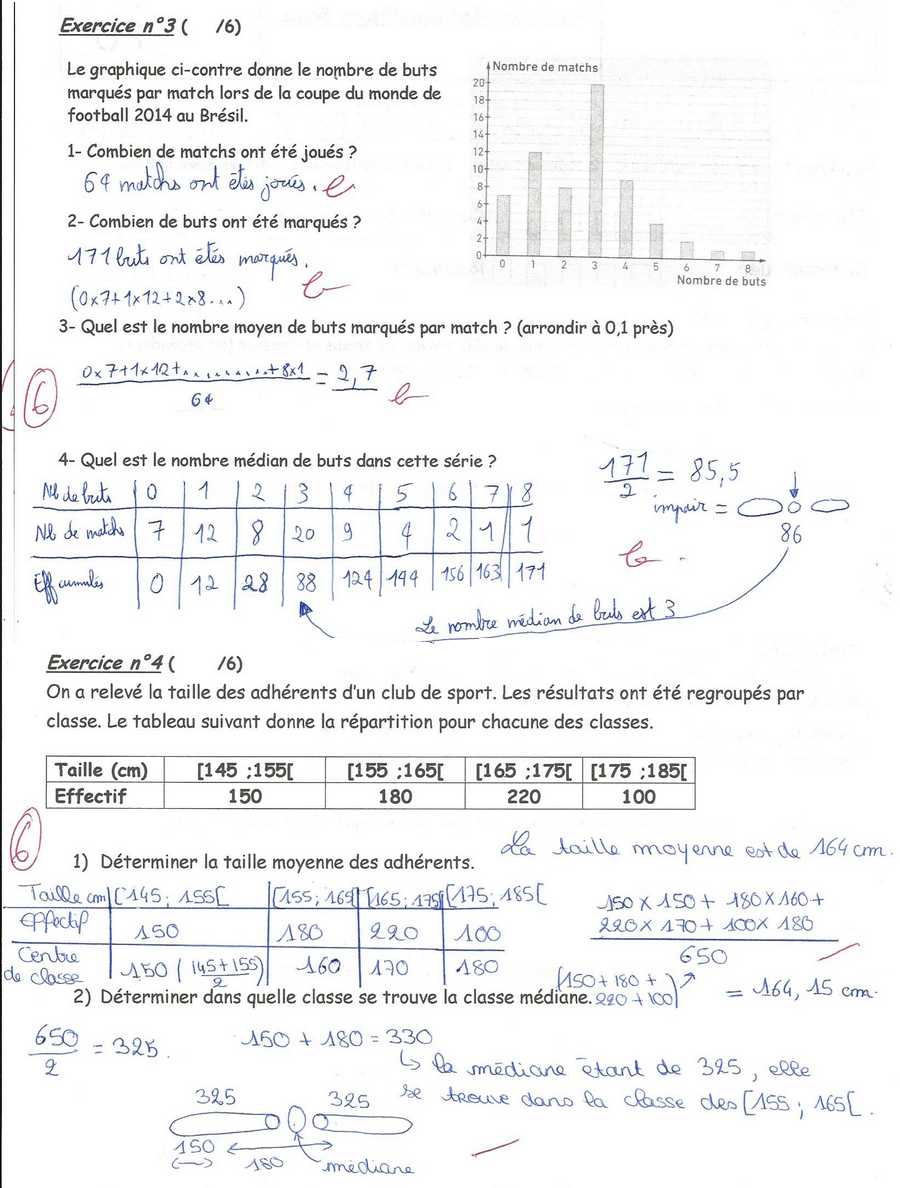 Exercice n°3 ( /6)
Le graphique ci-contre donne le nombre de buts
marqués par match lors de la coupe du monde de
football 2014 au Brésil.
Nombre de matchs
20
18
16
14
12
10
8
6
4
2
0 1 2 3 4 5 6 7 8
Nombre de buts
1- Combien de matchs ont été joués ?
64 matchs ont étés joués.
2- Combien de buts ont été marqués ?
171 buts ont étés marqués.
(0x7+1x12+2x8...)
3- Quel est le nombre moyen de buts marqués par match ? (arrondir à 0,1 près)
0x7+1x12+..........+8x1 = 2,7
64
6
4- Quel est le nombre médian de buts dans cette série ?
Nb de buts 0 1 2 3 4 5 6 7 8
Nb de matchs 7 12 8 20 9 4 2 1 1
Eff cumulés 0 12 28 88 124 144 156 163 171
171/2 = 85,5
impair =
86
Le nombre médian de buts est 3
Exercice n°4 ( /6)
On a relevé la taille des adhérents d'un club de sport. Les résultats ont été regroupés par
classe. Le tableau suivant donne la répartition pour chacune des classes.
Taille (cm) [145 ;155[ [155 ;165[ [165 ;175[ [175 ;185[
Effectif 150 180 220 100
6
1) Déterminer la taille moyenne des adhérents.
La taille moyenne est de 164 cm.
Taille cm [145; 155[ [155; 165[ [165; 175[ [175; 185[
Effectif 150 180 220 100
Centre de classe 150 (145+155/2) 160 170 180
150 x 150 + 180 x 160 +
220 x 170 + 100 x 180
650
(150 + 180 +
220 + 100)
= 164,15 cm.
2) Déterminer dans quelle classe se trouve la classe médiane.
650/2 = 325.
150 + 180 = 330
↳ la médiane étant de 325, elle
se trouve dans la classe des [155; 165[.
325 325
150
180 médiane